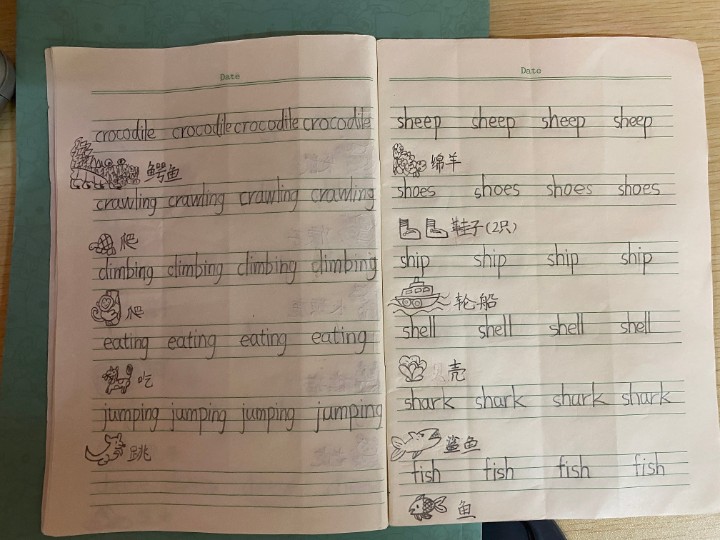 Date
crocodile crocodile crocodile crocodile
鳄鱼
crawling crawling crawling crawling
爬
climbing climbing climbing climbing
爬
eating eating eating eating
吃
jumping jumping jumping jumping
跳
Date
sheep sheep sheep sheep
绵羊
shoes shoes shoes shoes
鞋子(2只)
ship ship ship ship
轮船
shell shell shell shell
壳
shark shark shark shark
鲨鱼
fish fish fish fish
鱼